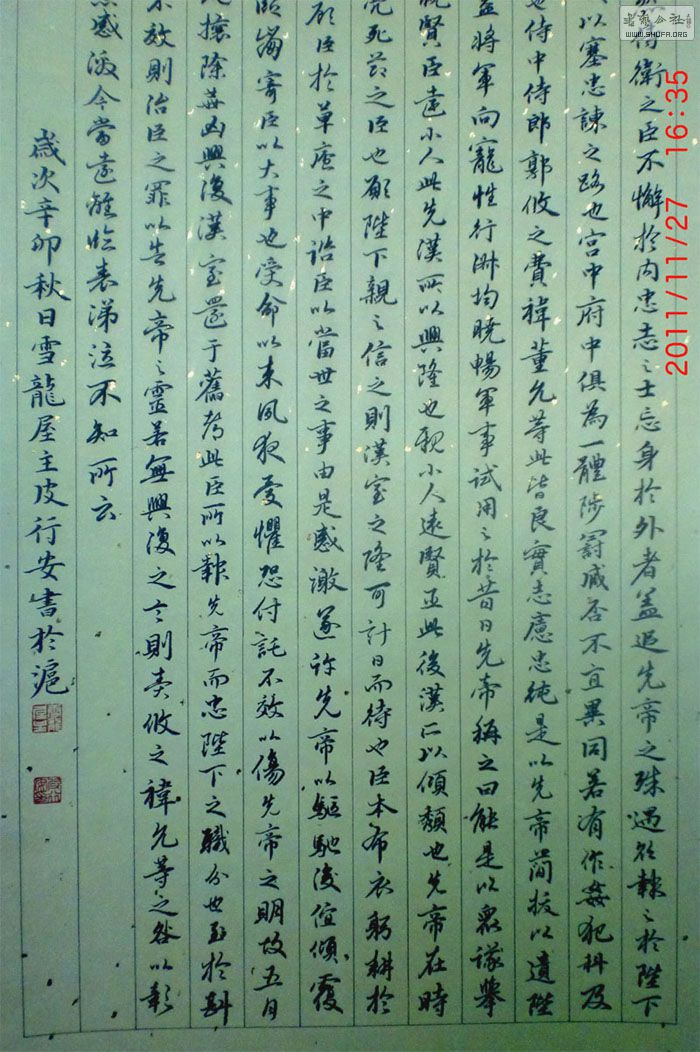 侍衛之臣不懈於內忠志之士忘身於外者蓋追先帝之殊遇欲報之於陛下
以塞忠諫之路也宮中府中俱為一體陟罰臧否不宜異同若有作姦犯科及
也侍中侍郎郭攸之費禕董允等此皆良實志慮忠純是以先帝簡拔以遺陛
將軍向寵性行淑均曉暢軍事試用之於昔日先帝稱之曰能是以眾議舉
賢臣遠小人此先漢所以興隆也親小人遠賢臣此後漢所以傾頹也先帝在時
死節之臣也願陛下親之信之則漢室之隆可計日而待也臣本布衣躬耕於
顧臣於草廬之中諮臣以當世之事由是感激遂許先帝以驅馳後值傾覆
臨崩寄臣以大事也受命以來夙夜憂懼恐付託不效以傷先帝之明故五月
攘除姦凶興復漢室還于舊都此臣所以報先帝而忠陛下之職分也至於斟
不效則治臣之罪以告先帝之靈若無興復之言則責攸之禕允等之咎以彰
感激今當遠離臨表涕泣不知所云
歲次辛卯秋日雪龍屋主皮行安書於滬
2011/11/27 16:35
WWW.SHUFA.ORG